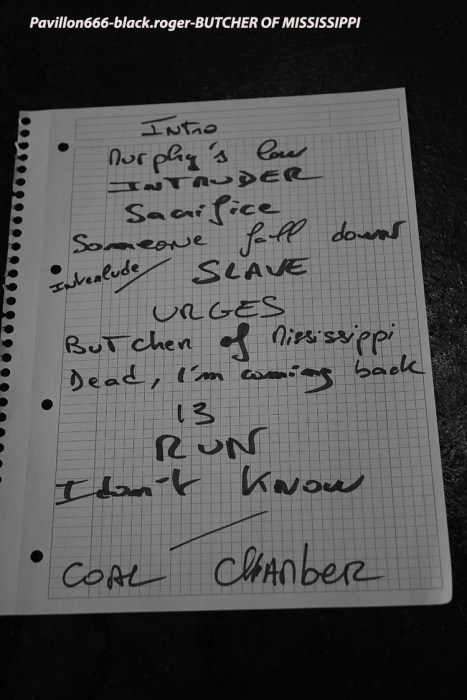 Pavillon666-black.roger-BUTCHER OF MISSISSIPPI
Intro
Murphy's law
INTRUDER
Sacrifice
Someone fall down
Interlude / SLAVE
URGES
BUTcher of Mississippi
Dead, I'm coming back
13
RUN
I don't KNOW
COAL CHAnBER